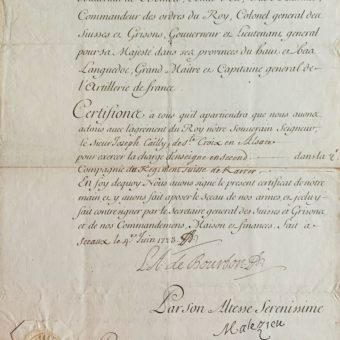 Commandeur des ordres du Roy, Colonel general des
Suisses et Grisons, Gouverneur et Lieutenant general
pour sa Majesté dans ses provinces du haut et bas
Languedoc, Grand Maitre et Capitaine general de
l'Artillerie de france.
Certifions à tous qu'il appartiendra que nous avons
admis avec l'agrément du Roy notre Souverain Seigneur,
le Sieur Joseph Cailly de Ste Croix en Alsace
pour exercer la charge d'enseigne en second dans la 2e
Compagnie du Regiment Suisse de Karrer
En foy dequoy Nous avons signé le present certificat de notre
main et y avons fait apposer le sceau de nos armes et iceluy
fait contresigner par le Secretaire general des Suisses et Grisons
et de nos Commandemens, Maison et finances. Fait à
Sceaux le 4e Juin 1733
L A de Bourbon
Par son Altesse Serenissime
Malezieu